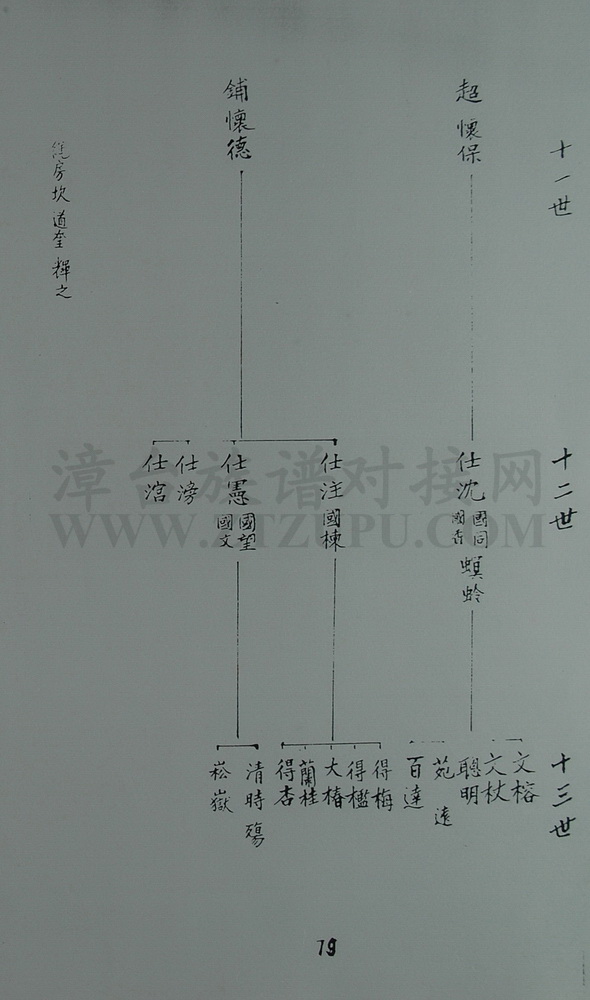 十一世
超懷保
鋪懷德
房坎道奎輝之
十二世
仕沈國同國香螟蛉
仕注國棟
仕憲國望國文
仕滂
仕涫
十三世
文榕
文杖
聰明
苑遠
百達
得梅
得槛
大椿
蘭桂
得杏
清時殤
崧嶽
漳台族谱对接网
WWW.ZTZUPU.COM
79